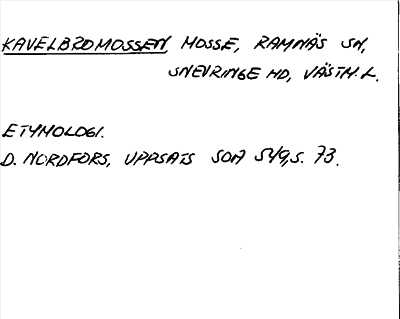 KAVELBROMOSSEN, MOSSE, RAMNÄS SN,
SNEVRINGE HD, VÄSTM. L.
ETYMOLOGI.
D. NORDFORS, UPPSATS SOA 549, S. 73.